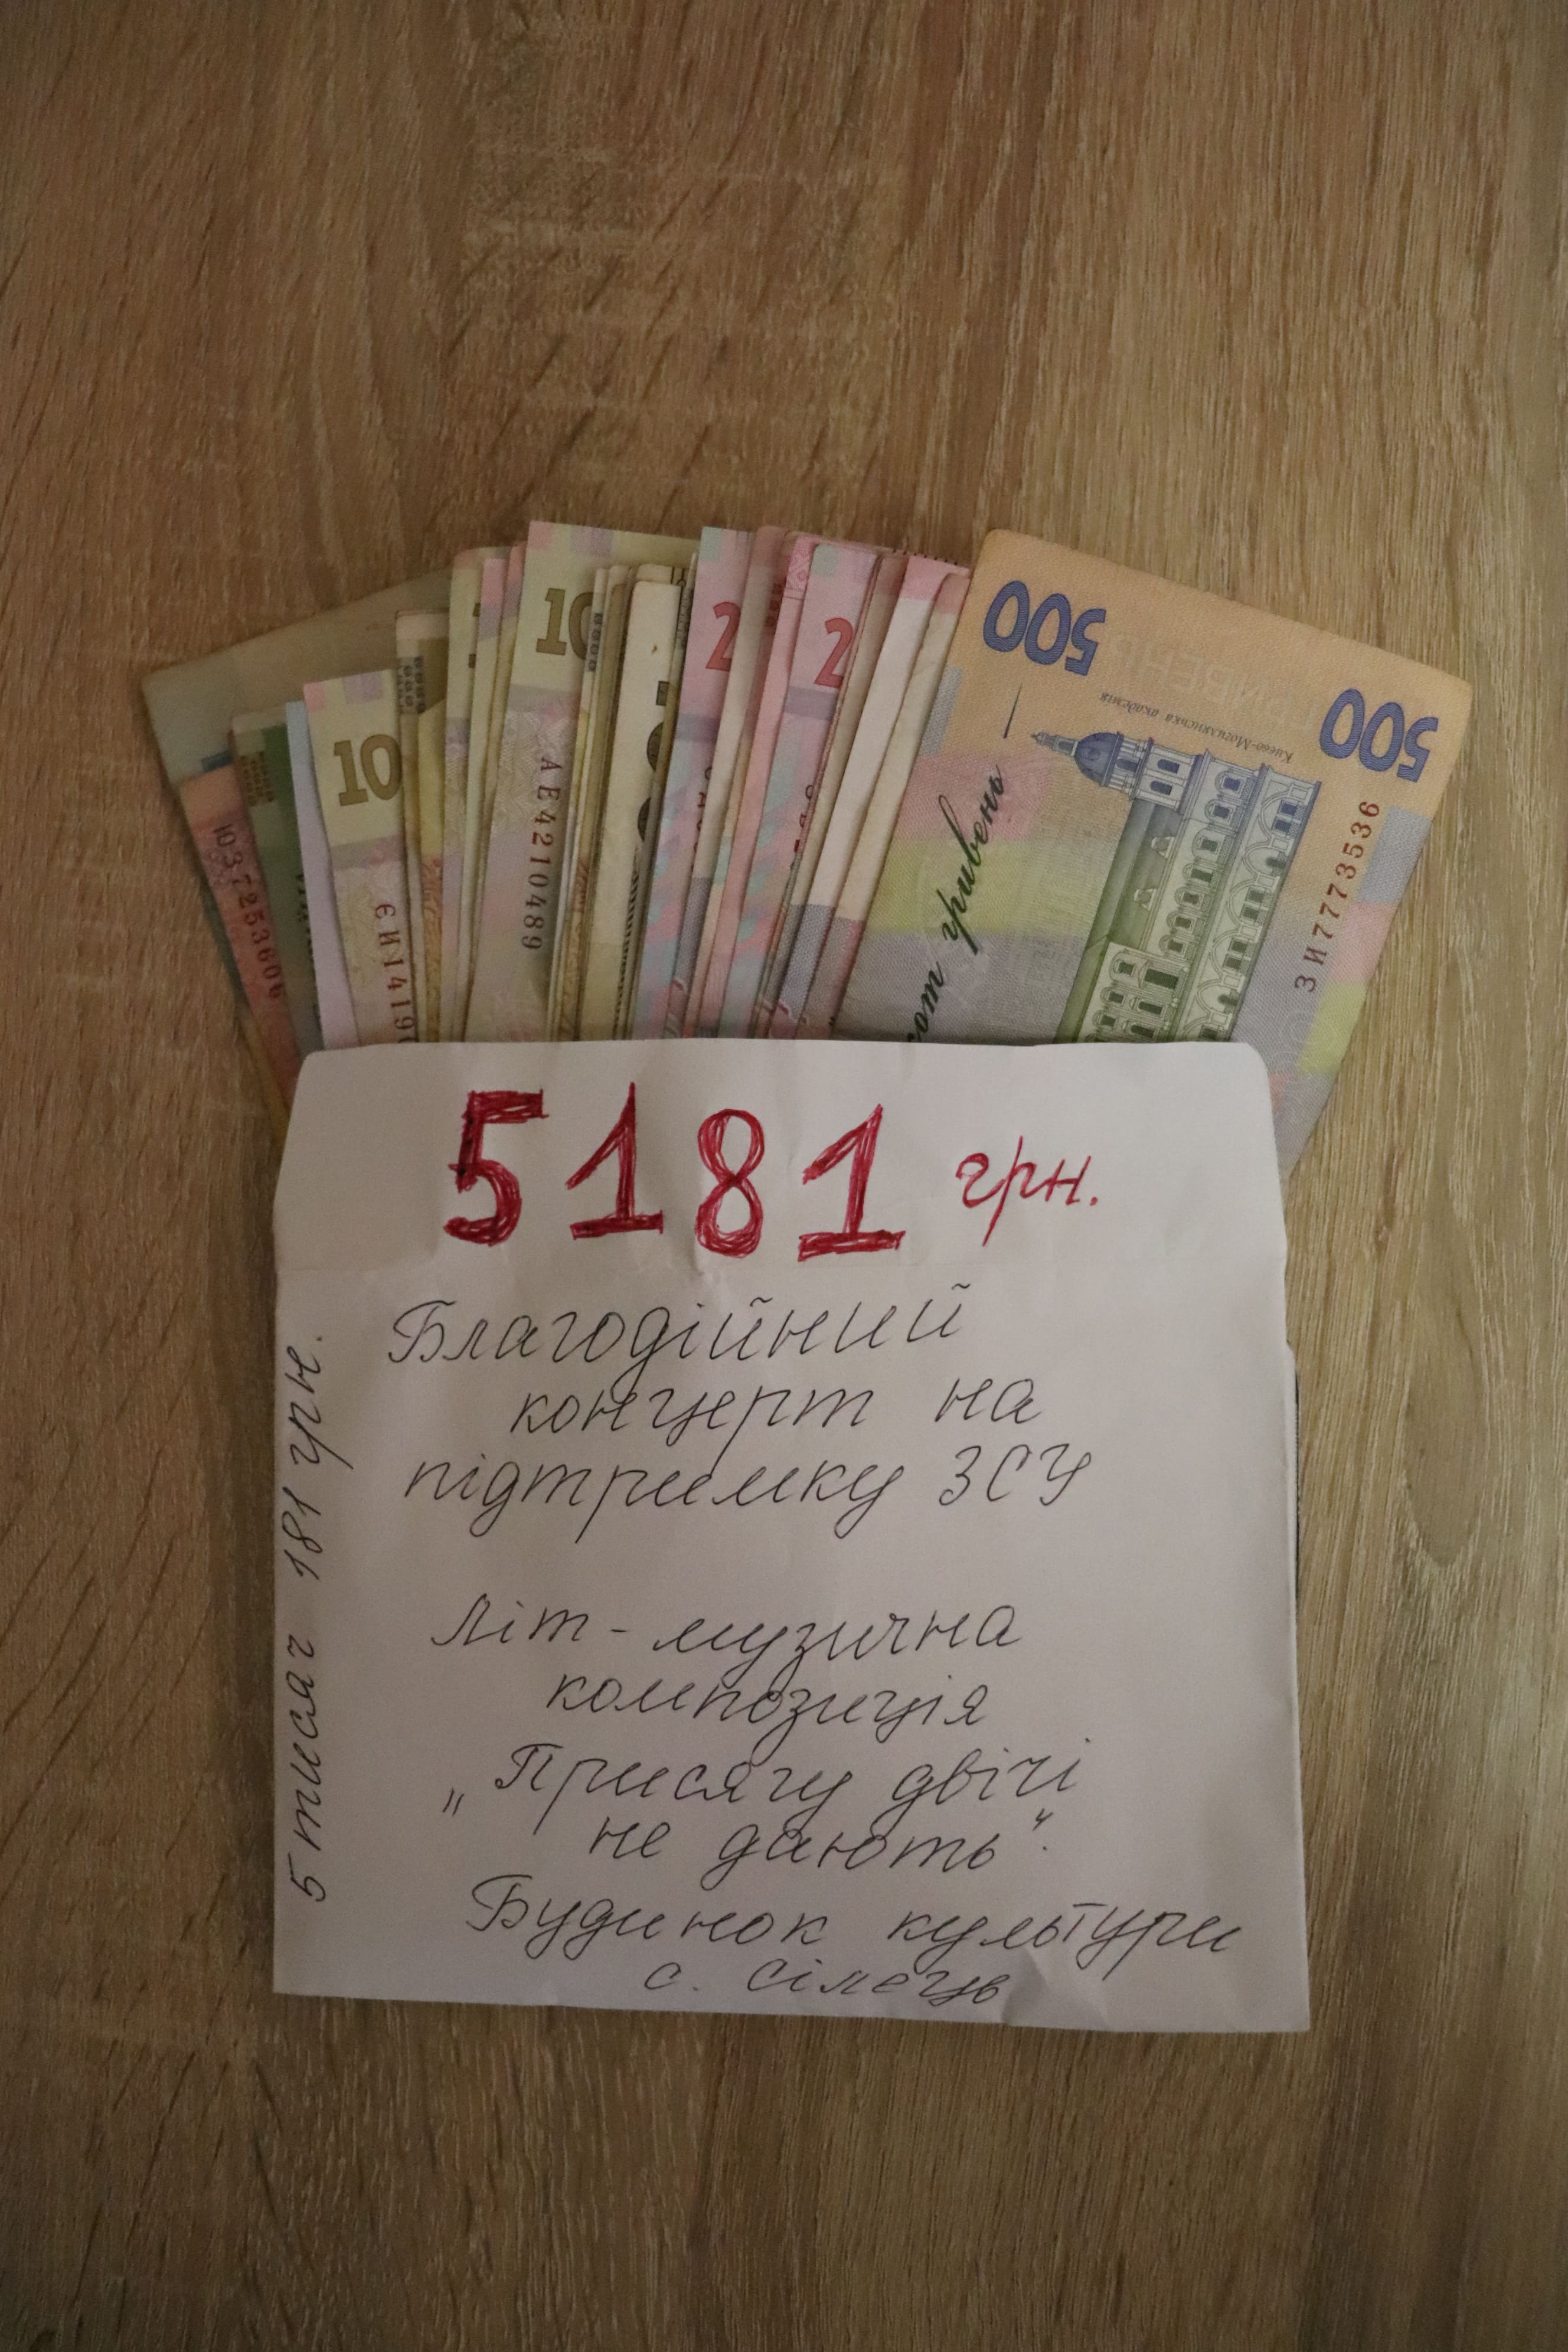 10
10
2
2
500
500
Києво-Могилянська академія
гривень
ЗИ7773536
АЕ4210489
5181 грн.
Благодійний
концерт на
підтримку ЗСУ
Літ-музична
композиція
„Присягу двічі
не дають".
Будинок культури
с. Сілець
5 тисяч 181 грн.